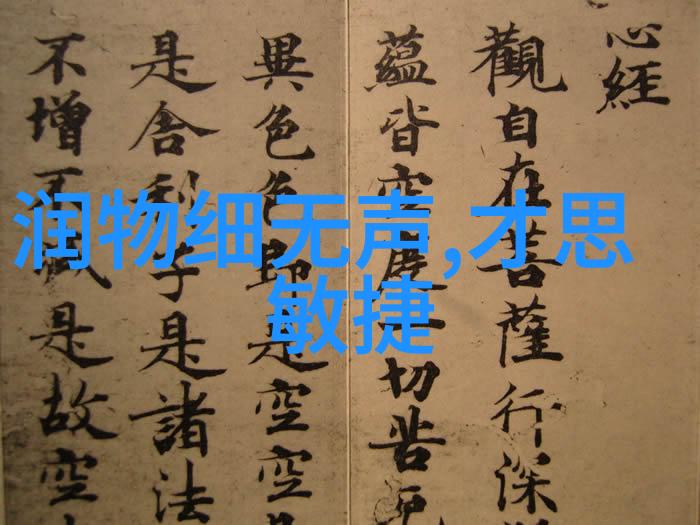 心經
觀自在菩薩行深
蘊皆空度一切苦厄
異色色即是空空
是舍利子是諸法
不增不減是故空
润物细无声,才思
敏捷